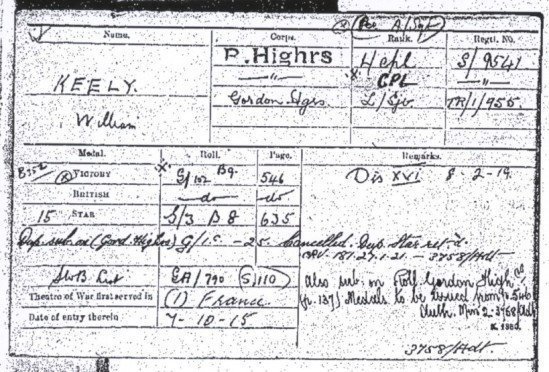 Name. Corps. Rank. Regtl. No.
KEELY. R. Highrs A/Cpl S/9541
—"— CPL —"—
William Gordon Hgrs L/Sjt TR/1/955.
Medal. Roll. Page. Remarks.
VICTORY G/102 B9. 546 Dis XVI 8-2-19.
BRITISH —do— do
15 STAR S/3 B8 635
Dup. sub. on (Gord. Highrs) G/1.S. - 25. Cancelled. Dup. Star ret'd.
187. 27.1.21. - 3758/Adt
SWB List GA/790 (S)110 also sub. on Roll Gordon High
Theatre of War first served in (1) France (p. 137) Medals to be issued from p. 546
Date of entry therein 7-10-15 Auth. 2-3758/Adt
K. 1380.
3758/Adt.